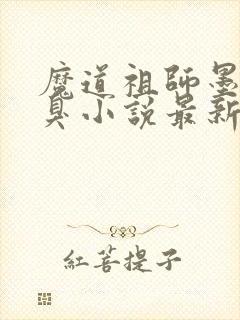 魔道祖師墨
臭小說最新
紅菩提子